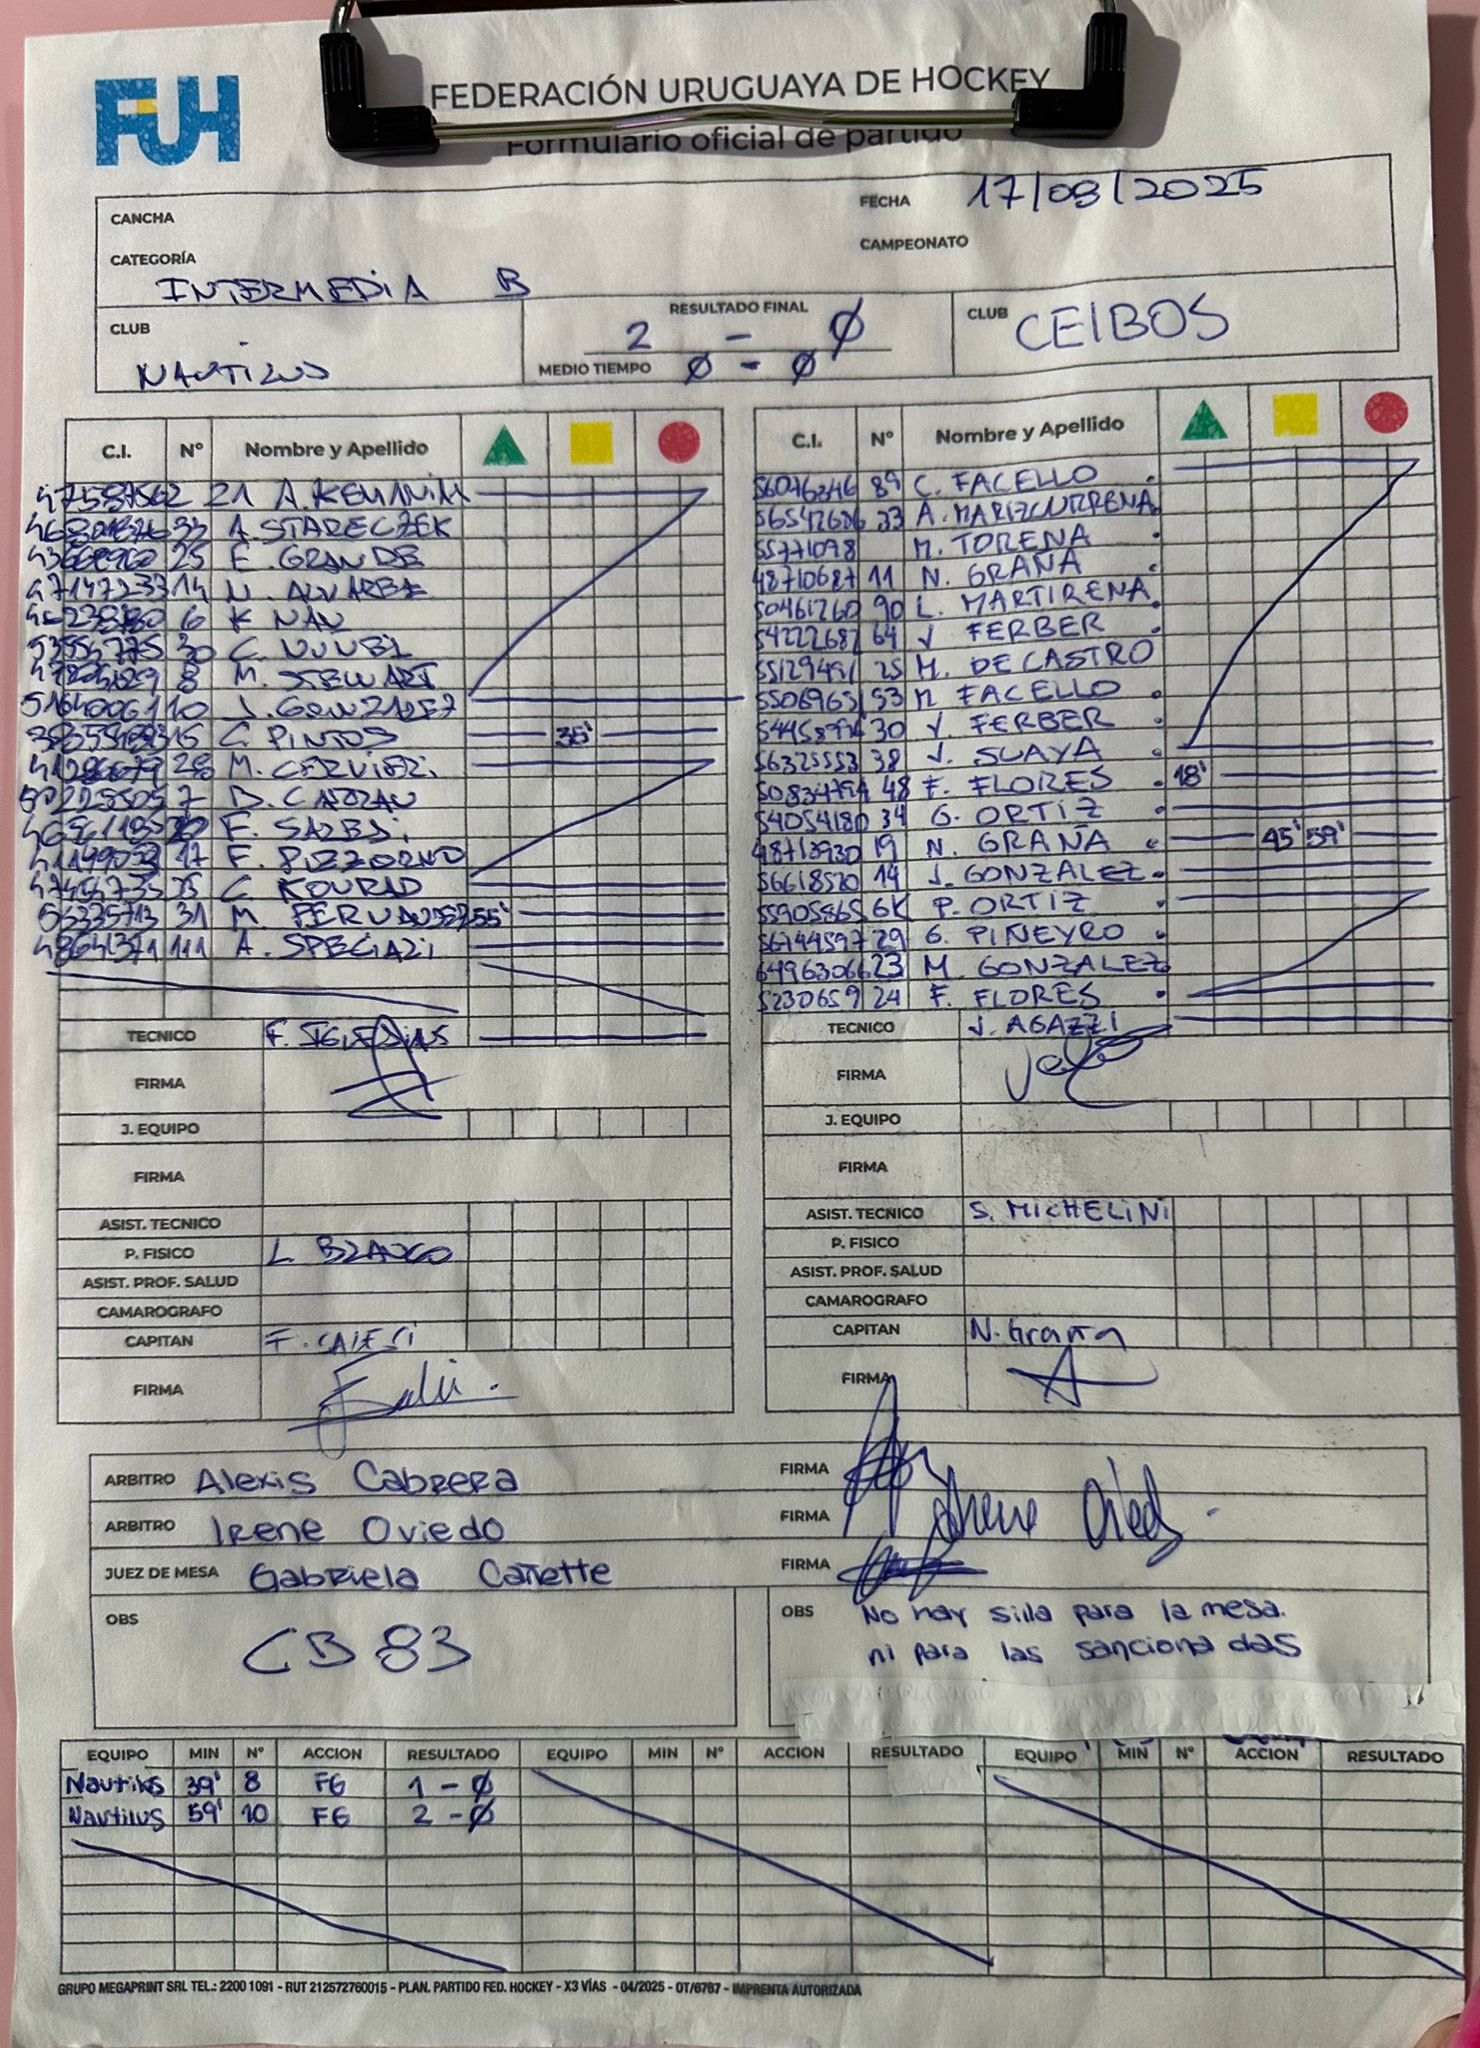 FUH
FEDERACIÓN URUGUAYA DE HOCKEY
Formulario oficial de partido
CANCHA
FECHA 17/08/2025
CATEGORÍA INTERMEDIA B
CAMPEONATO
CLUB NAUTILUS
RESULTADO FINAL 2 - 0
MEDIO TIEMPO 0 - 0
CLUB CEIBOS
C.I. Nº Nombre y Apellido
21
33 A. STARECZEK
25 F. GRANDE
47147233 14
6 K NAU
30 C.
8 M. STEWART
51640061 10 J.
15 C. PINTOS 35'
28 M. CERVIERI
7
F.
17 F. PIZZORNO
C. KONRAD
56235713 31 M. 55'
48641371 111 A.
TECNICO
FIRMA
J. EQUIPO
FIRMA
ASIST. TECNICO
P. FISICO L. BLANCO
ASIST. PROF. SALUD
CAMAROGRAFO
CAPITAN
FIRMA
C.I. Nº Nombre y Apellido
56046346 89 C. FACELLO
33 A. MARIZCURRENA
55771098 M. TORENA
48710687 11 N. GRAÑA
50461260 90 L. MARTIRENA
54222687 64 J. FERBER
55129491 25 M. DE CASTRO
55069651 53 M. FACELLO
30 V. FERBER
56325553 38 J. SUAYA
48 F. FLORES 18'
54054180 34 G. ORTIZ
48713930 19 N. GRAÑA 45' 59'
56618520 14 J. GONZALEZ
55905865 6K P. ORTIZ
56744597 29 G. PIÑEYRO
64963066 23 M. GONZALEZ
5230659 24 F. FLORES
TECNICO J. AGAZZI
FIRMA
J. EQUIPO
FIRMA
ASIST. TECNICO S. MICHELINI
P. FISICO
ASIST. PROF. SALUD
CAMAROGRAFO
CAPITAN N. Graña
FIRMA
ARBITRO Alexis Cabrera FIRMA
ARBITRO Irene Oviedo FIRMA Irene Oviedo
JUEZ DE MESA Gabriela Cañette FIRMA
OBS CB 83
OBS No hay silla para la mesa.
ni para las sancionadas
EQUIPO MIN Nº ACCION RESULTADO EQUIPO MIN Nº ACCION RESULTADO EQUIPO MIN Nº ACCION RESULTADO
Nautilus 39' 8 FG 1 - 0
Nautilus 59' 10 FG 2 - 0
GRUPO MEGAPRINT SRL TEL.: 2200 1091 - RUT 212572760015 - PLAN. PARTIDO FED. HOCKEY - X3 VÍAS - 04/2025 - OT/6787 - IMPRENTA AUTORIZADA